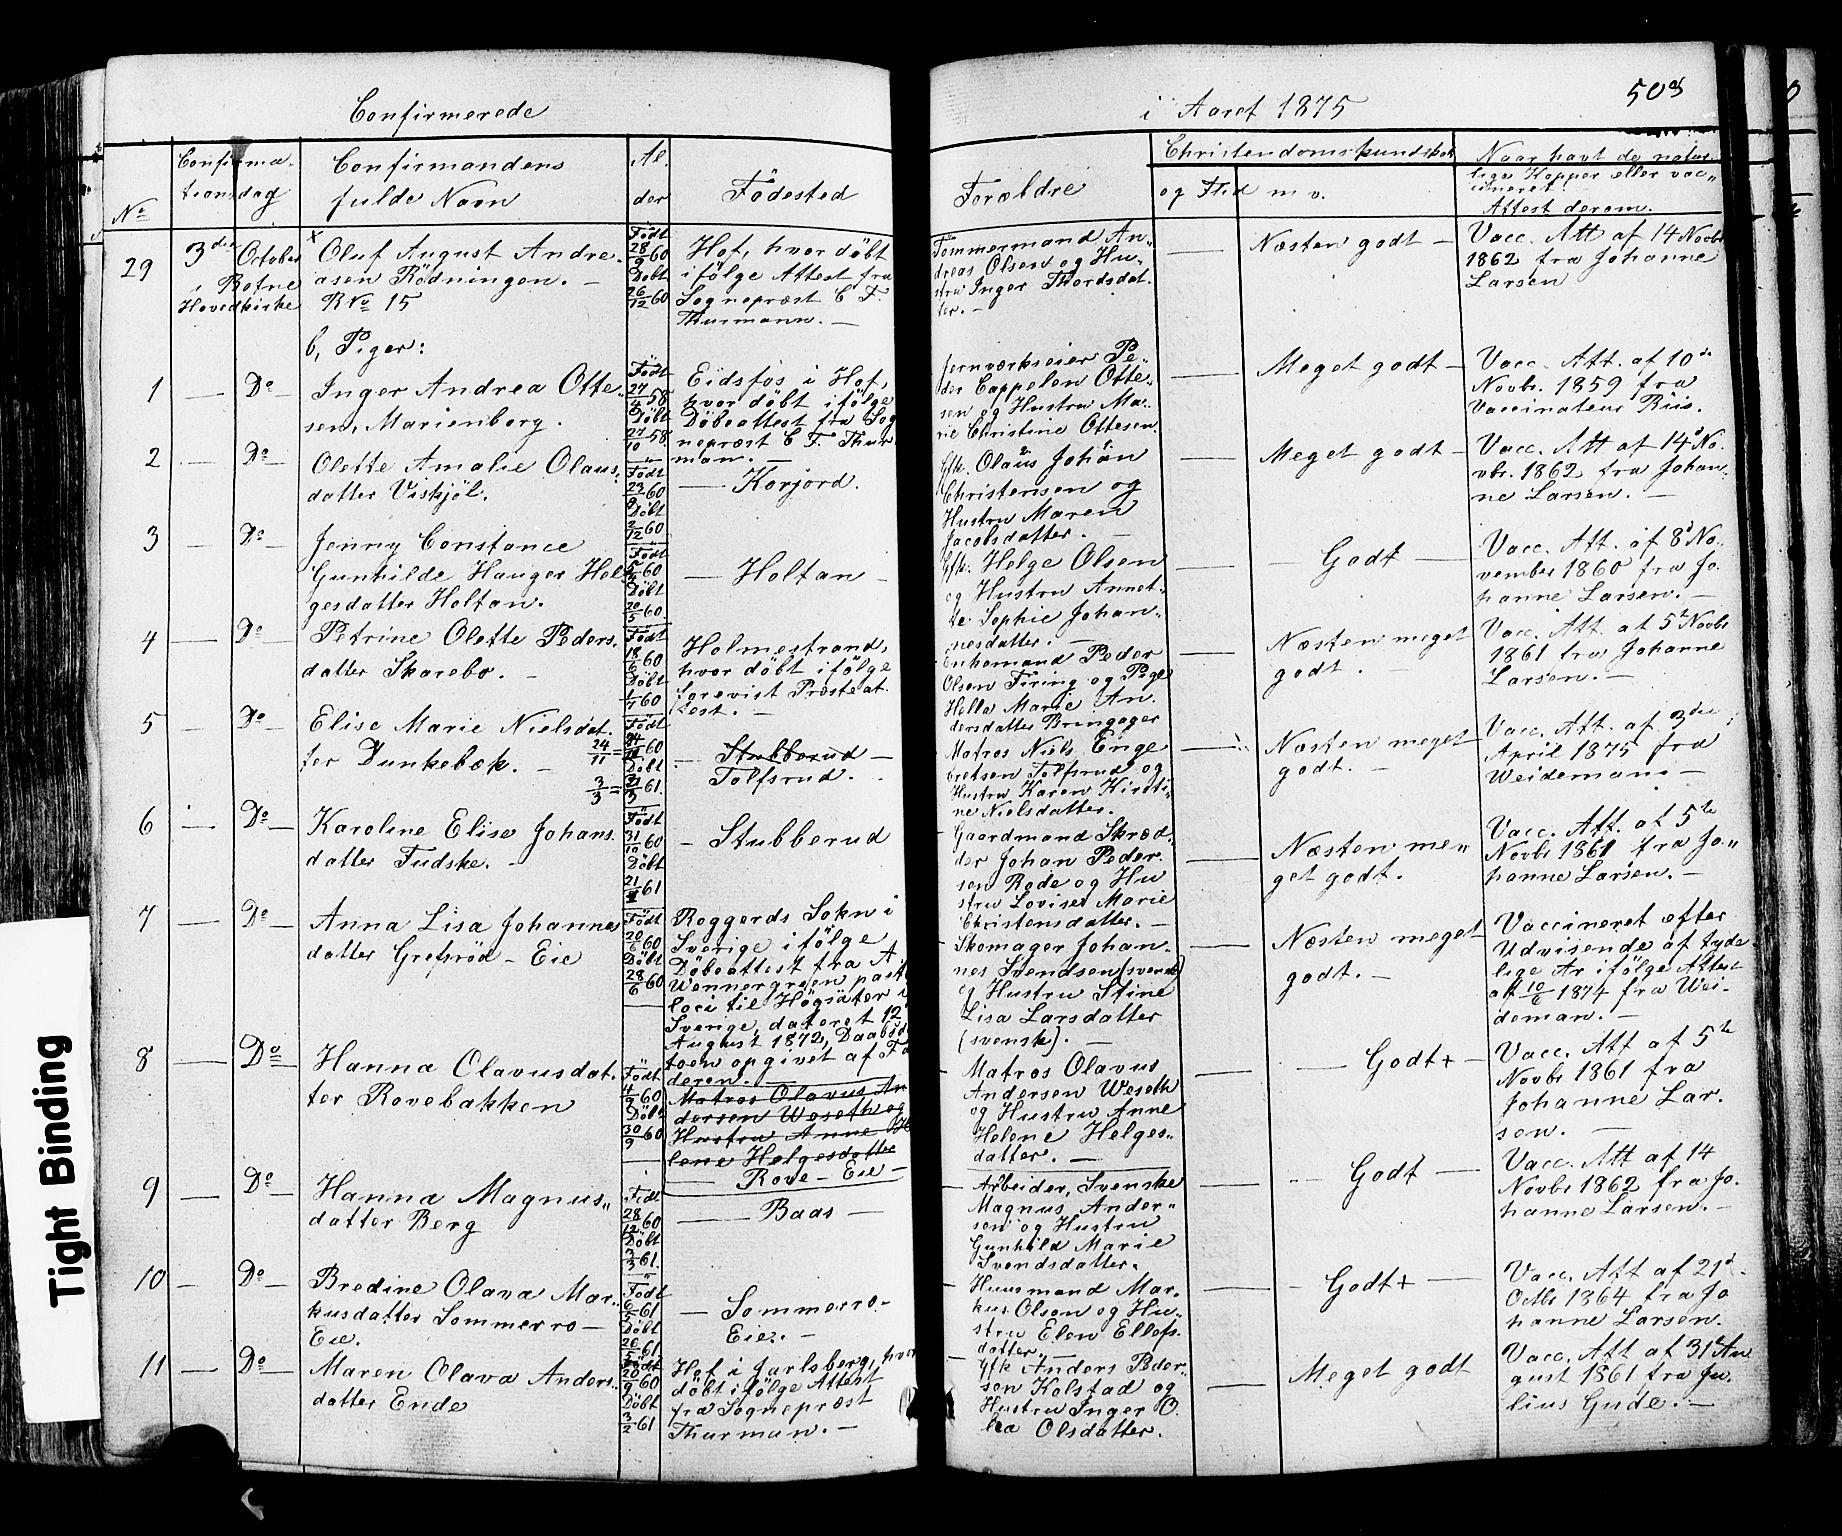 Confirmerede
i Aaret 1875
503
No
Confirma-
tionsdag
Confirmandens
fulde Navn
Al.
der
Födested
Forældre
Christendomskundskab
og Flid m v.
Naar havt de natur-
lige Kopper eller vac-
cineret
Attest derom.
29
3die October
i Botne
Hovedkirke
x
Oluf August Andre-
asen Rödningen. —
R No 15
Födt
28/9 60
Döbt
26/12 60
Hof, hvor döbt
ifölge Attest fra
Sognepræst C F.
Thurmann. —
Tömmermand An-
dreas Olsen og Hu-
stru Inger Thordsdat-
ter. —
Næsten godt —
Vacc. Att af 14 Novbr
1862 fra Johanne
Larsen
b, Piger:
1
Do
Inger Andrea Otte-
sen, Marienborg.
Födt
27/4 58
Döbt
27/10 58
Eidsfos i Hof,
hvor döbt ifölge
Döbeattest fra Sog
nepræst C F. Thur
man. —
Jernværkseier Pe-
der Cappelen Otte-
sen og Hustru Ma-
rie Christine Ottesen.
Meget godt —
Vacc. Att. af 10de
Novbr. 1859 fra
Vaccinateur Riis.
2
Do
Olette Amalie Olaus-
datter Viskjöl.
Födt
23/9 60
Döbt
2/12 60
— Korjord.
Gfk. Olaus Johan
Christensen og
Hustru Maren
Jacobsdatter. —
Meget godt —
Vacc. Att af 14 No-
vbr. 1862 fra Johan-
ne Larsen. —
3
Do
Jenny Constance
Gunhilde Hauger Hel-
gesdatter Holtan.
Födt
5/4 60
Döbt
20/5 60
— Holtan —
Gfk. Helge Olsen
og Hustru Annet-
te Sophie Johan-
nesdatter. —
— Godt —
Vacc. Att. af 8 No-
vember 1860 fra Jo-
hanne Larsen. —
4
Do
Petrine Olette Peders-
datter Skarebo. —
Födt
18/6 60
Döbt
1/7 60
Holmestrand,
hvor döbt ifölge
forevist Presteat-
test. —
Enkemand Peder
Olsen Firing og Pige
Helle Marie An-
dersdatter Bringager
Næsten meget
godt.
Vacc. Att. af 5te Novbr
1861 fra Johanne
Larsen. —
5
Do
Elise Marie Nielsdat-
ter Dunkebæk. —
24/11 =
3/3 =
Födt
60
Döbt
61.
— Stubberud —
Tolfsrud.
Matros Niels Enge
bretsen Tolfsrud og
Hustru Karen Kirsti-
ne Nielsdatter.
Næsten meget
godt. —
Vacc. Att. af 3die
April 1875 fra
Weideman. —
6
Do
Karoline Elise Johans-
datter Fudske. —
Födt
31/10 60
Döbt
21/1 61
— Stubberud
Gaardmand Skræd-
der Johan Peder-
sen Rode og Hu
stru Lovise Marie
Christensdatter. —
Næsten me-
get godt.
Vacc. Att. af 5te
Novbr 1861 fra Jo-
hanne Larsen. —
7
Do
Anna Lisa Johannes
datter Grefsröd - Eie
Födt
20/6 60
Döbt
28/6 60
Roggerds Sokn i
Sverige ifölge
Döbeattest fra A
Wennergreen past
loci til Högsäter i
Sverige, dateret 12
August 1872, Daabsda
toen opgivet af Fa
deren. —
Skomager Johan-
nes Svendsen (svensk)
og Hustru Stine
Lisa Larsdatter
(svensk). —
Næsten meget
godt. —
Vaccineret efter
Udvisende af tyde-
lige Ar ifölge Attest
af 10/6 1874 fra Wei-
deman. —
8
Do
Hanna Olavusdat-
ter Rovebakken
Födt
4/9 60
Döbt
30/9 60
Matros Olavus An
dersen Weseth og
Hustru Anne He
lene Helgesdatter
— Rove - Eie —
Matros Olavus
Andersen Weseth
og Hustru Anne
Helene Helges-
datter. —
— Godt+ —
Vacc. Att af 5te
Novbr 1861 fra
Johanne Lar-
sen. —
9
Do
Hanna Magnus-
datter Berg
Födt
28/12 60
Döbt
3/3 61.
— Baas —
Arbeider, Svenske
Magnus Ander-
sen og Hustru
Gunhild Marie
Svendsdatter.
— Godt —
Vacc. Att af 14
Novbr 1862 fra Jo-
hanne Larsen. —
10
Do
Bredine Olava Mar-
kusdatter Sommerro -
Eie.
Födt
6/5 61
Döbt
26/5 61
— Sommerro -
Eie. —
Huusmand Mar-
kus Olsen og Hu-
stru Elen Ellefs-
datter. —
— Godt+ —
Vacc. Att af 21de
Octbr 1864 fra Jo
hanne Larsen.
11
Do
Maren Olava Anders-
datter Ende
Födt
20/9 60
Döbt
3/2 61
Hof i Jarlsberg, hvor
döbt ifölge Attest
fra Sognepræst
Thurman. —
Gfk Anders Peder-
sen Kolstad og
Hustru Inger O-
lea Olsdatter.
Meget godt
Vacc. Att af 31te Au
gust 1861 fra Ju-
lius Gude. —
Tight Binding